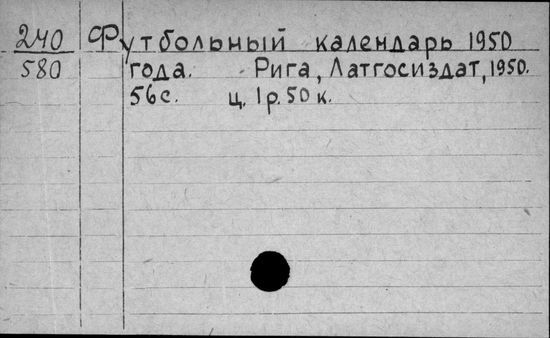 240 Футбольный календарь 1950
580 года. Рига, Латгосиздат, 1950.
56с. ц. 1р. 50 к.